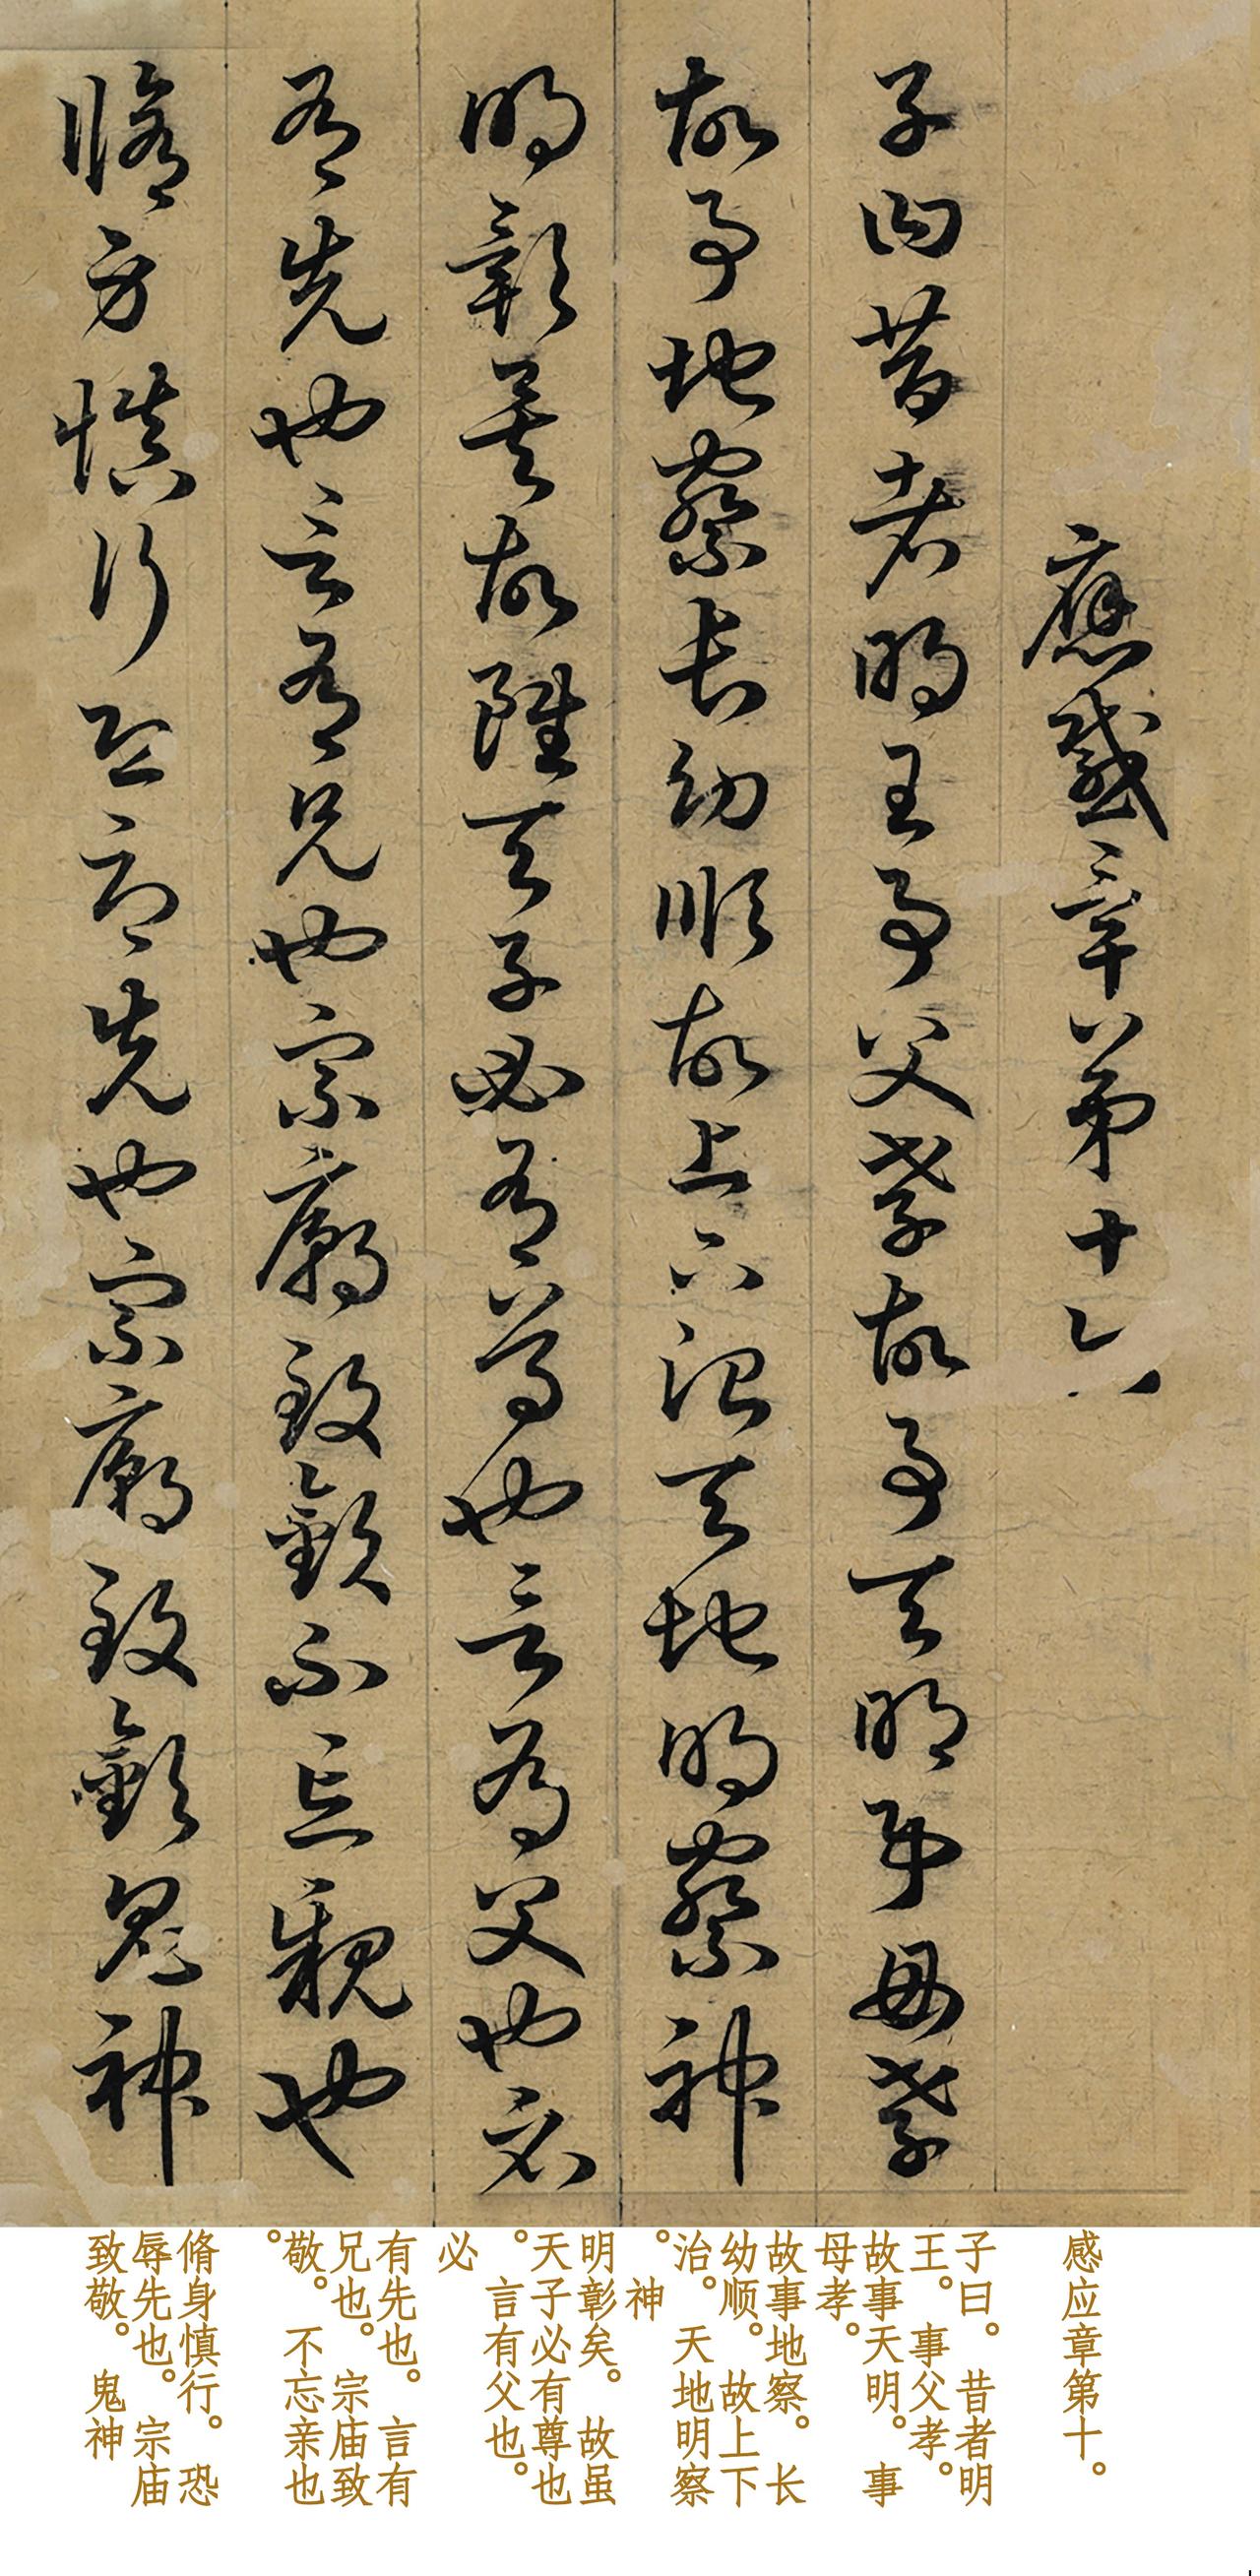 應感章第十六
子曰昔者明王事父孝故事天明事母孝
故事地察長幼順故上下治天地明察神
明彰矣故雖天子必有尊也言有父也必
有先也言有兄也宗廟致敬不忘親也
脩身慎行恐辱先也宗廟致敬鬼神
感应章第十。
子曰。昔者明
王。事父孝。
故事天明。事
母孝。
故事地察。长
幼顺。故上下
治。天地明察
。神
明彰矣。故虽
天子必有尊也
。言有父也。
必
有先也。言有
兄也。宗庙致
敬。不忘亲也
。
脩身慎行。恐
辱先也。宗庙
致敬。鬼神